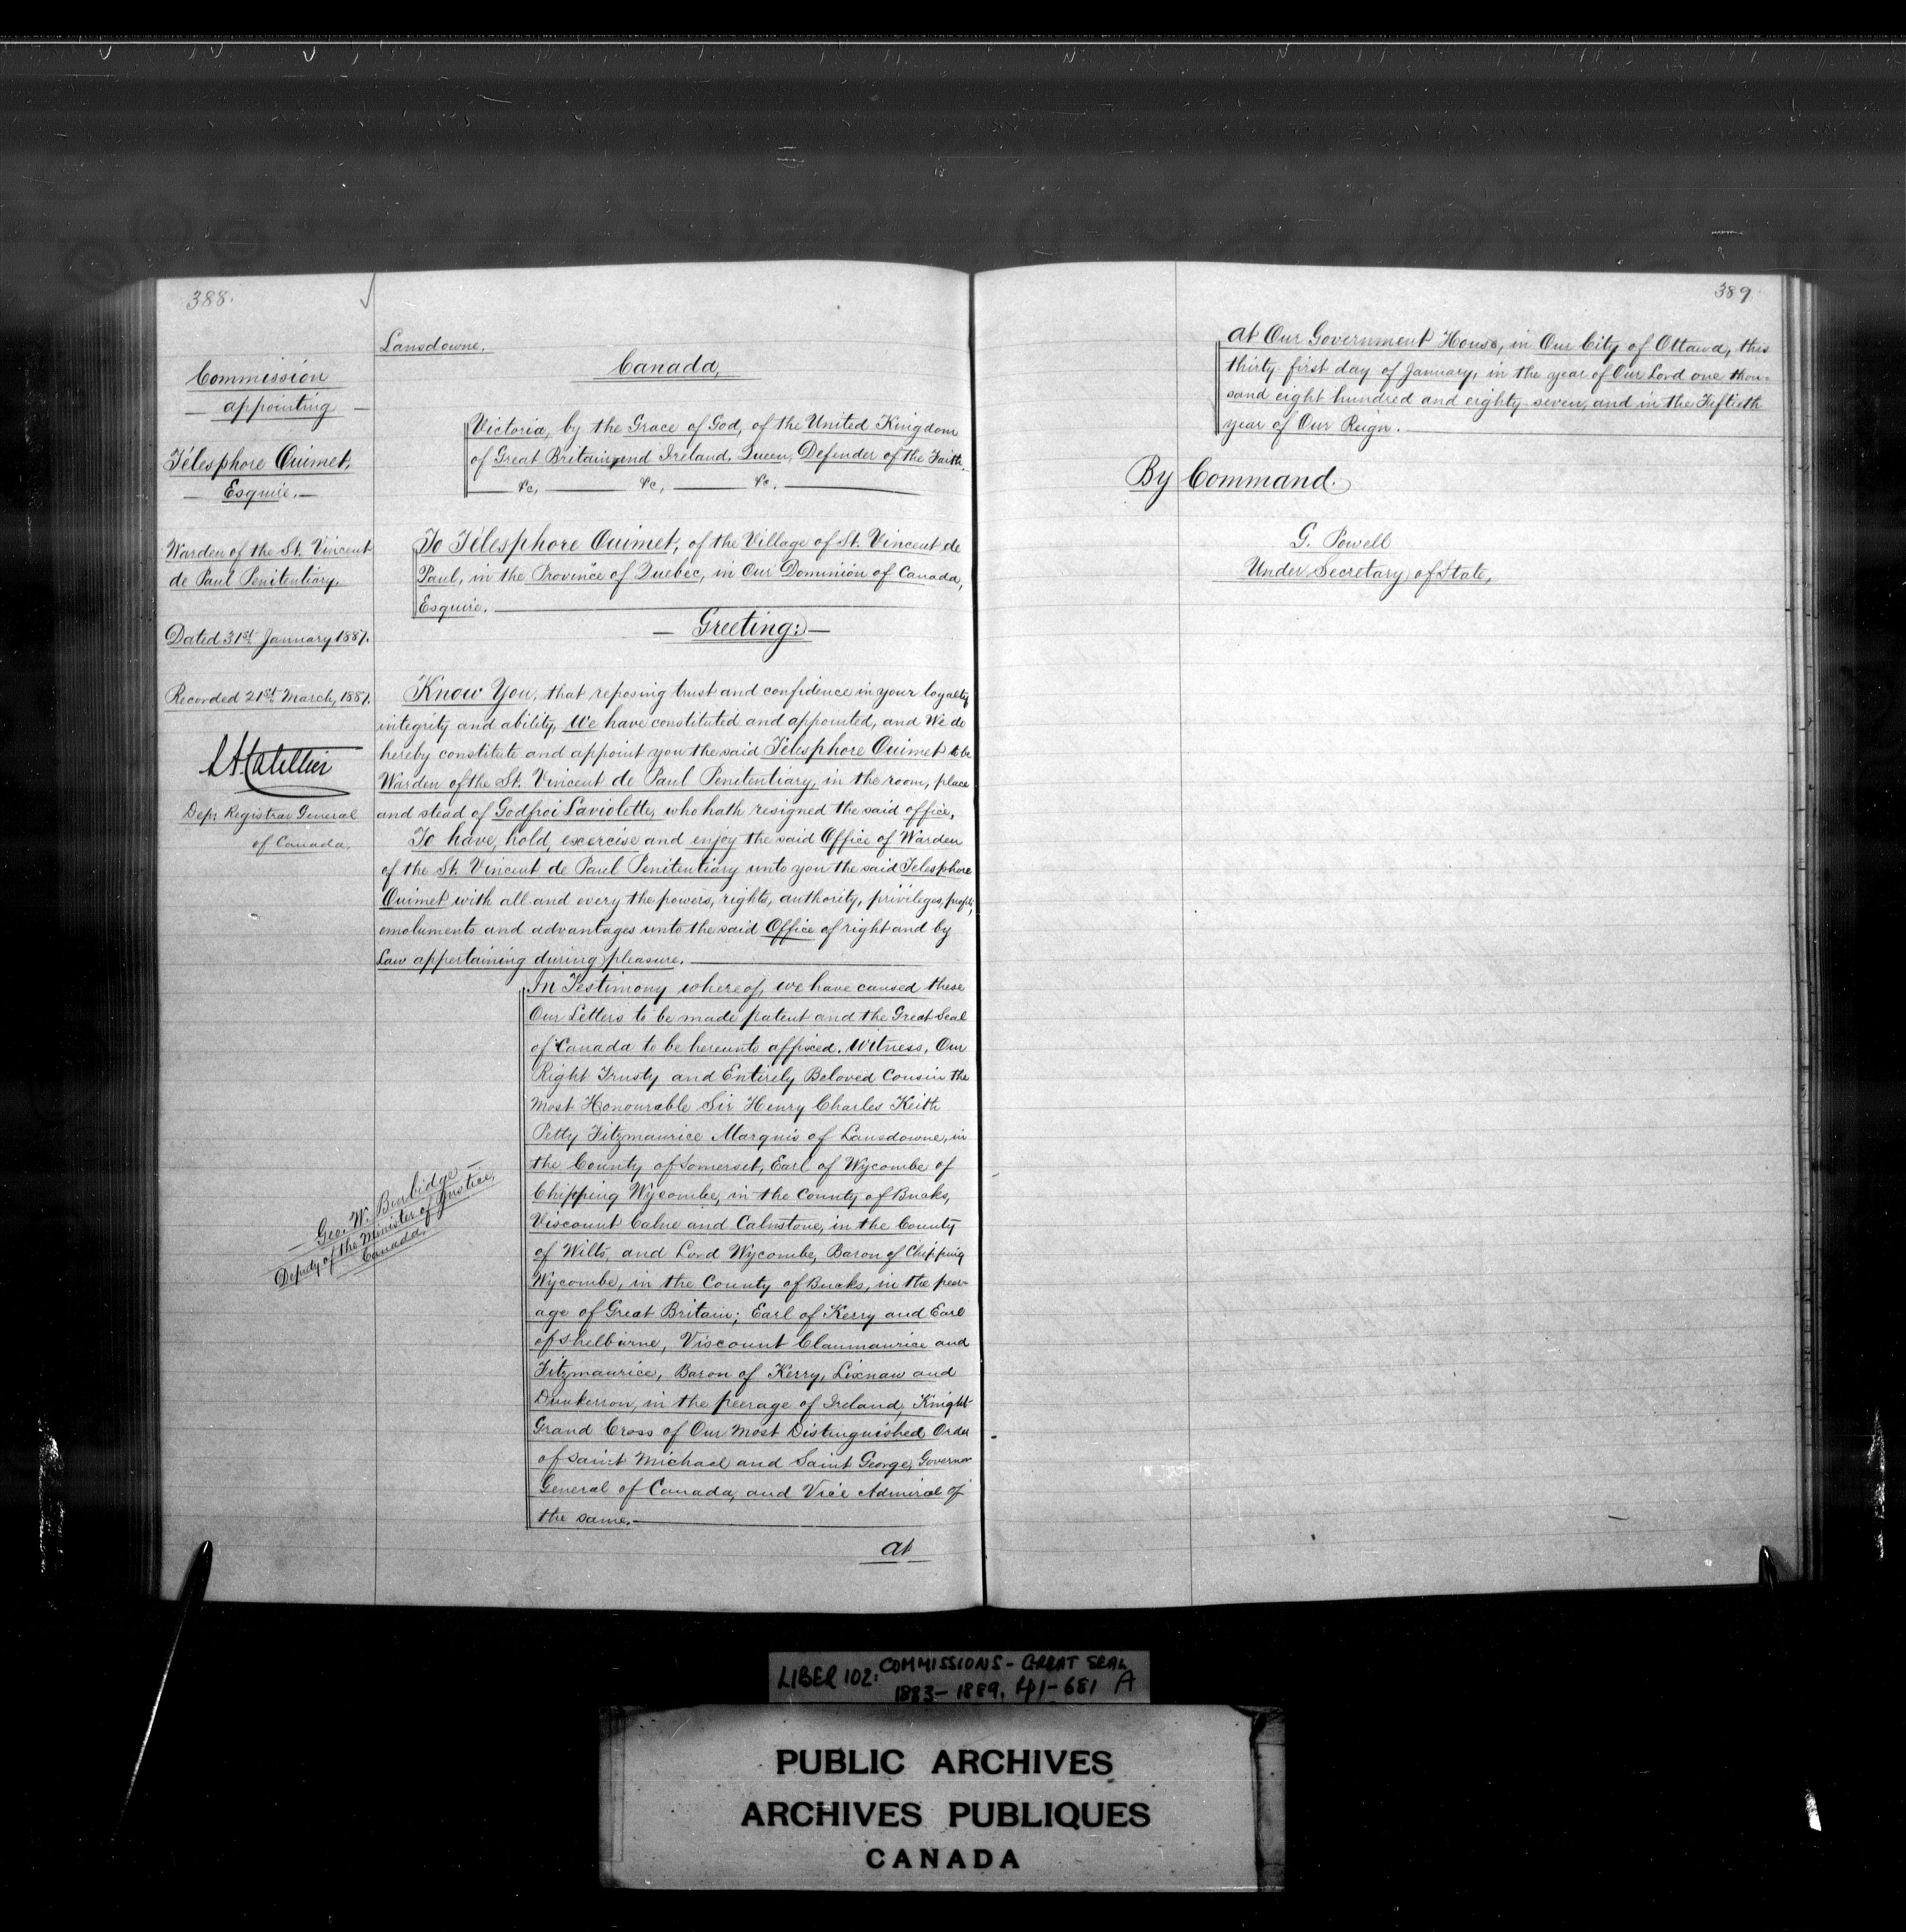 388.
Commission
appointing
Télesphore Ouimet,
Esquire.
Warden of the St. Vincent
de Paul Penitentiary.
Dated 31st January 1887.
Recorded 21st March, 1887.
Dep: Registrar General
of Canada,
Geo. W. Burbidge
Deputy of the Minister of Justice,
Canada,
Lansdowne.
Canada,
Victoria, by the Grace of God, of the United Kingdom
of Great Britain, and Ireland, Queen, Defender of the Faith.
&c, &c, &c.
To Télesphore Ouimet, of the Village of St. Vincent de
Paul, in the Province of Quebec, in Our Dominion of Canada,
Esquire.
Greeting:
Know You, that reposing trust and confidence in your loyalty
integrity and ability, We have constituted and appointed, and We do
hereby constitute and appoint you the said Télesphore Ouimet to be
Warden of the St. Vincent de Paul Penitentiary, in the room, place
and stead of Godfroi Laviolette, who hath resigned the said office,
To have, hold, exercise and enjoy the said Office of Warden
of the St. Vincent de Paul Penitentiary unto you the said Telesphore
Ouimet with all and every the powers, rights, authority, privileges, profits,
emoluments and advantages unto the said Office of right and by
Law appertaining during pleasure.
In Testimony whereof, we have caused these
Our Letters to be made patent and the Great Seal
of Canada to be hereunto affixed. Witness, Our
Right Trusty and Entirely Beloved Cousin the
Most Honourable Sir Henry Charles Keith
Petty Fitzmaurice Marquis of Lansdowne, in
the County of Somerset, Earl of Wycombe of
Chipping Wycombe, in the County of Bucks,
Viscount Calne and Calnstone, in the County
of Wilts, and Lord Wycombe, Baron of Chipping
Wycombe, in the County of Bucks, in the peer-
age of Great Britain; Earl of Kerry and Earl
of Shelburne, Viscount Clanmaurice and
Fitzmaurice, Baron of Kerry, Lixnaw and
Dunkerron, in the peerage of Ireland, Knight
Grand Cross of Our Most Distinguished Order
of Saint Michael and Saint George, Governor
General of Canada, and Vice Admiral of
the same.
at
389
at Our Government House, in Our City of Ottawa, this
thirty first day of January, in the year of Our Lord one thou-
sand eight hundred and eighty seven, and in the Fiftieth
year of Our Reign.
By Command.
G. Powell
Under Secretary of State,
LIBER 102: COMMISSIONS - GREAT SEAL
1883-1889, 41-681 A
PUBLIC ARCHIVES
ARCHIVES PUBLIQUES
CANADA